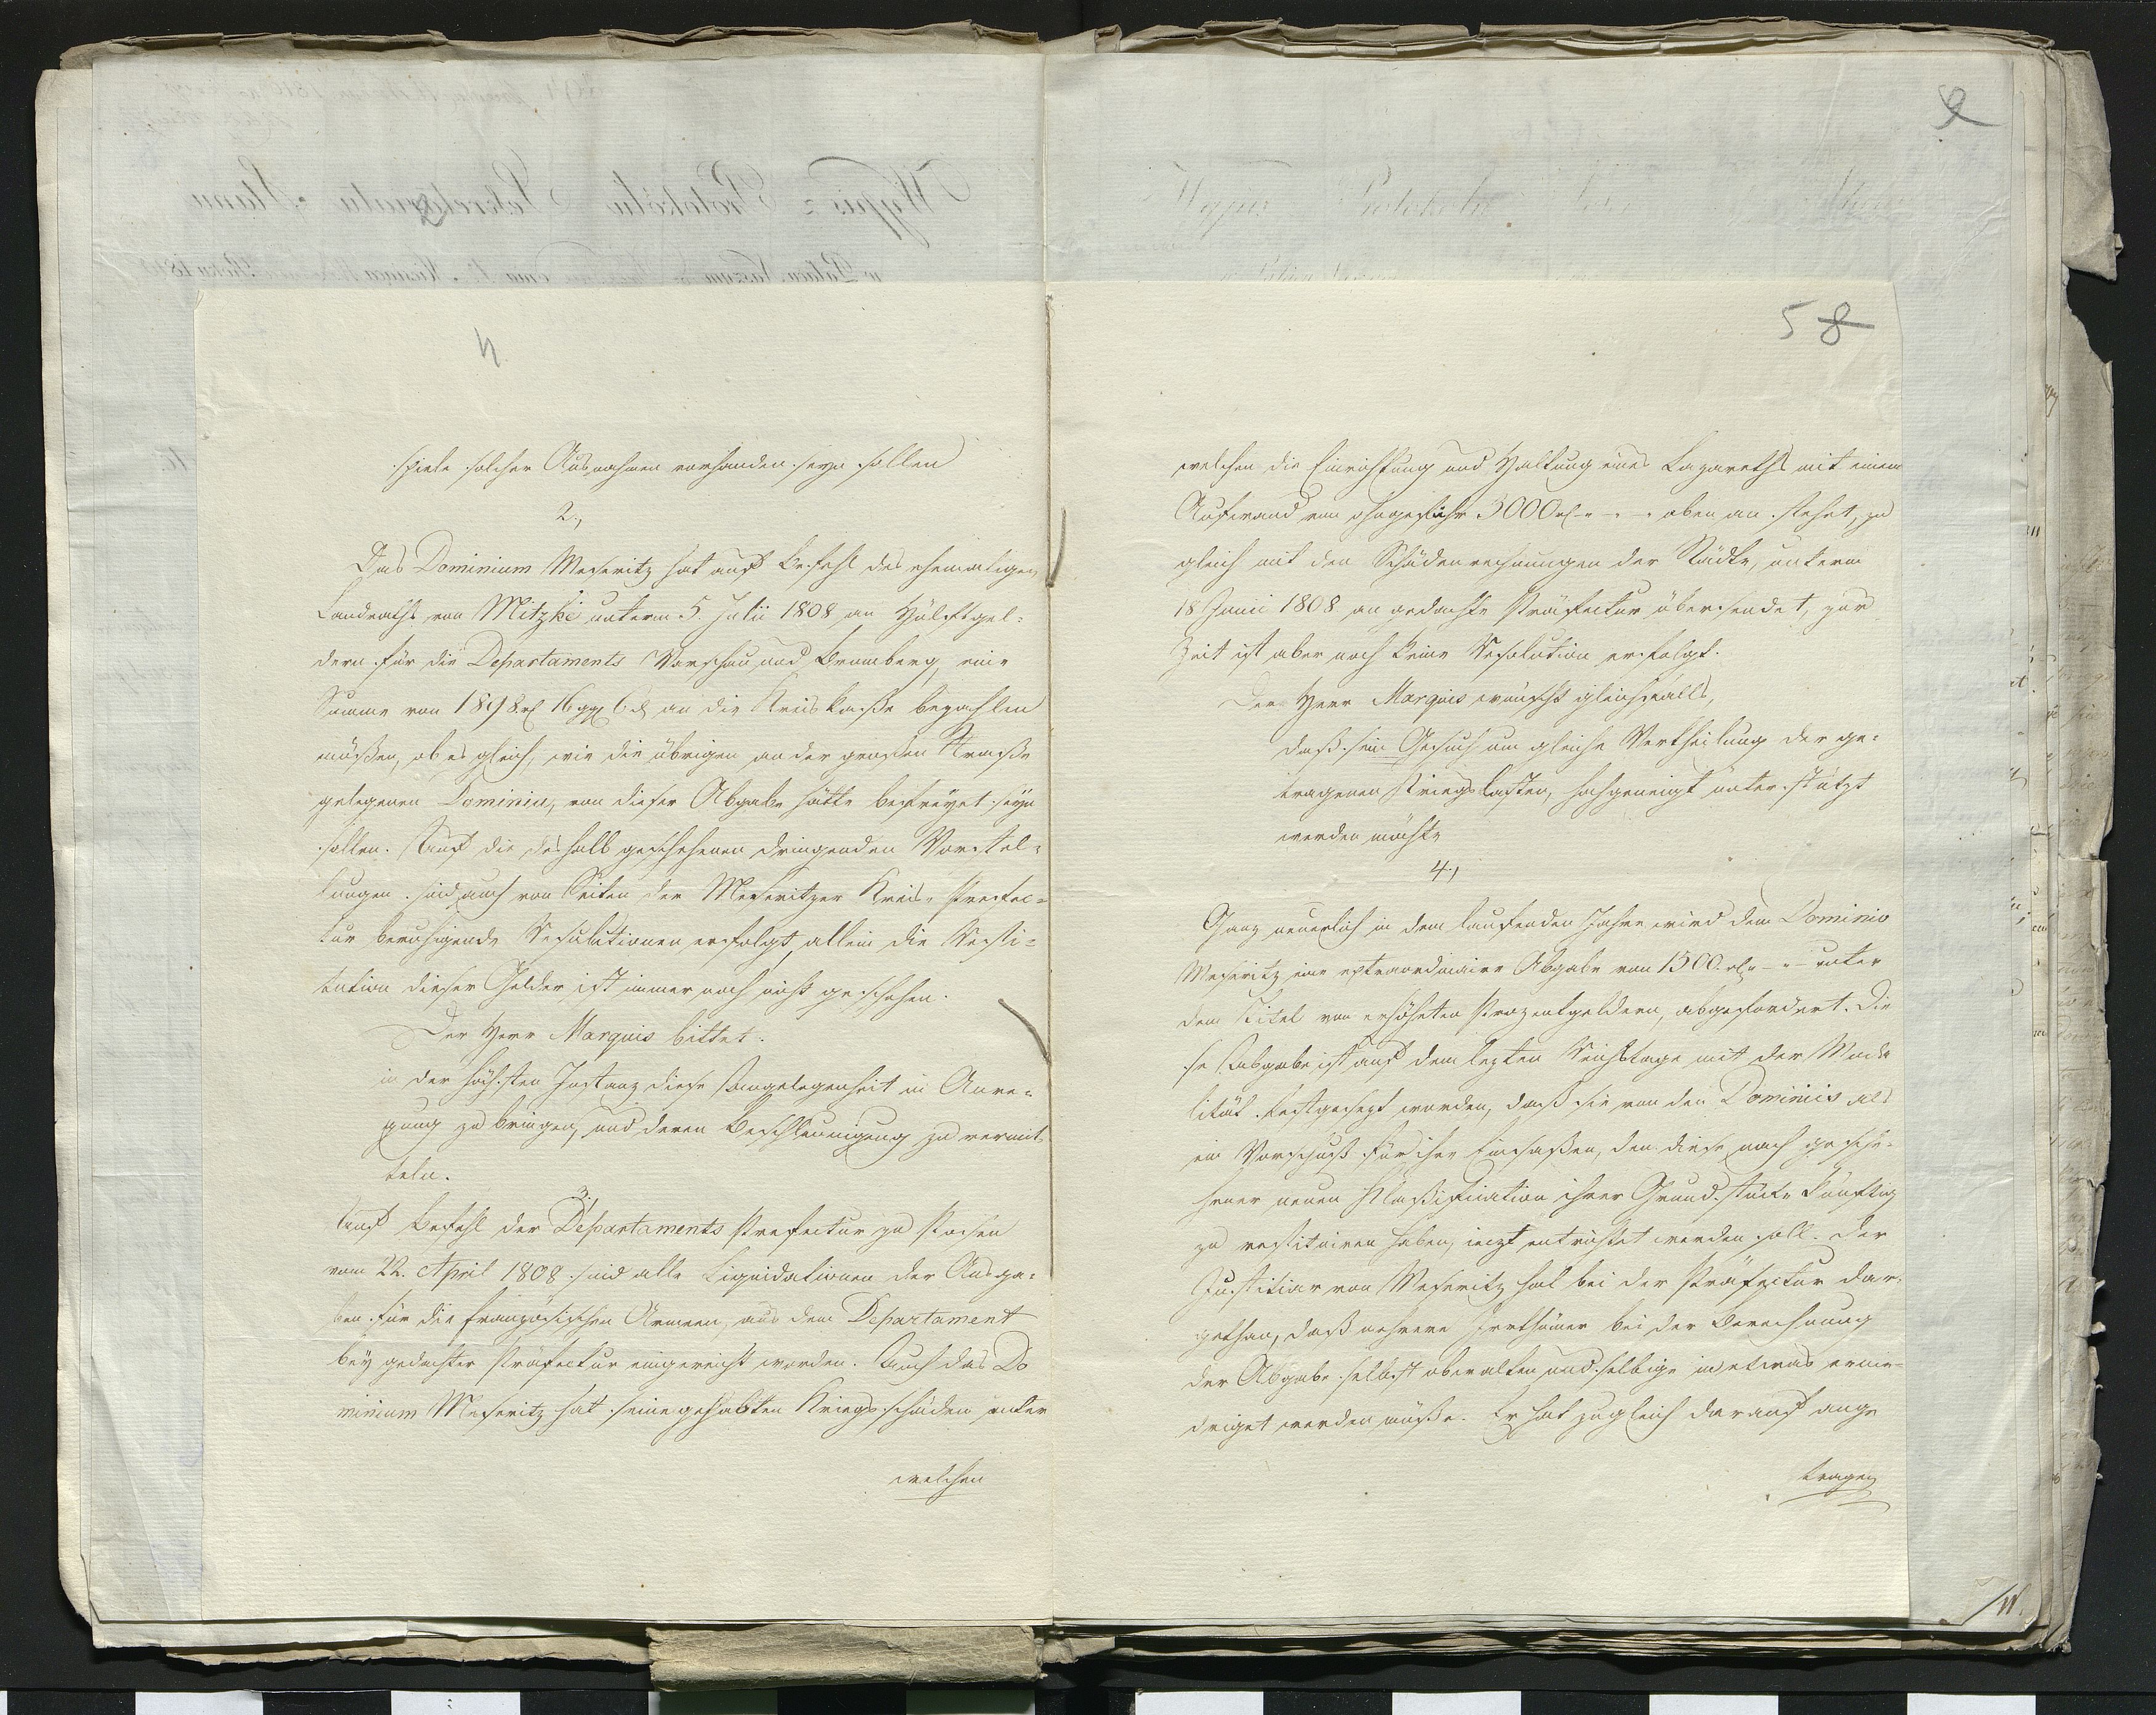 4
spiele solcher Ausnahmen vorhanden seyn sollen
2.,
Das Dominium Meseritz hat auf Befehl des ehemaligen
Landraths von Mitzki unterm 5. Julii 1808 an Hülfsgel-
dern für die Departaments Warschau und Bromberg, eine
Summe von 1898 rl 16 ggr 6 d an die Kreis Kaße bezahlen
müßen, ob es gleich, wie die übrigen an der großen Straße
gelegenen Dominien, von dieser Abgabe hätte befreyet seyn
sollen. Auf die deshalb geschehenen dringenden Vorstel-
lungen sind auch von Seiten der Meseritzer Kreis-Praefec-
tur beruhigende Resolutionen erfolgt, allein die Resti-
tution dieser Gelder ist immer noch nicht geschehen.
Der Herr Marquis bittet:
in der höchsten Instanz diese Angelegenheit in Anre-
gung zu bringen, und deren Beschleunigung zu vermit-
teln.
3.
Auf Befehl der Departaments Praefectur zu Posen
vom 22. April 1808 sind alle Liquidationen der Ausga-
ben für die französischen Armeen, aus dem Departament
bey gedachter Präfectur eingereicht worden. Auch das Do
minium Meseritz hat seine gehabten Kriegsschäden unter
welchen
9
58
welchen die Einrichtung und Haltung eines Lazareths mit einem
Aufwand von ohngefähr 3000 rl - - - oben an stehet, zu
gleich mit den Schädenrechnungen der Städte, unterm
18 Junii 1808 an gedachte Präfectur übersendet, zur
Zeit ist aber noch keine Resolution erfolgt.
Der Herr Marquis wünscht gleichfalls,
daß sein Gesuch um gleiche Vertheilung der ge-
tragenen Kriegslasten, hochgeneigt unterstützt
werden möchte
4.,
Ganz neuerlich in dem laufenden Jahre wird dem Dominio
Meseritz eine extraordinaire Abgabe von 1500 rl - - - unter
dem Titel von erhöheten Prozentgeldern, abgefordert. Die
se Abgabe ist auf dem lezten Reichstage mit der Moda
lität festgesezt worden, daß sie von den Dominiis als
ein Vorschuß für ihre Einsaßen, den diese nach gesche-
hener neuen Klaßification ihrer Grundstücke künftig
zu restituiren haben, iezt entrichtet werden soll. Der
Justitiar von Meseritz hat bei der Präfectur dar-
gethan, daß mehrere Irrthümer bei der Berechnung
der Abgabe selbst obwalten und selbige in etwas ernie-
driget werden müße. Er hat zugleich darauf ange
tragen